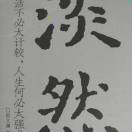 淡然
适不必太计较,人生何必太强